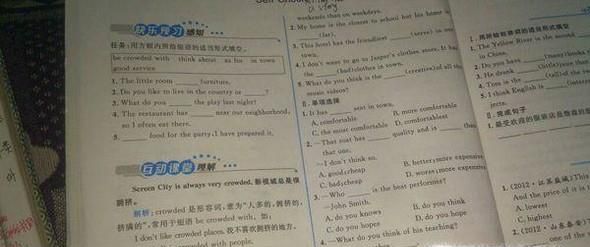 a story
weekends than on weekdays.
快乐预习感知
任务:用方框内所给短语的适当形式填空。
be crowded with think about as for in town
good service
1. The little room ______ furniture.
2. Do you like to live in the country or ______?
3. What do you ______ the play last night?
4. The restaurant has ______ near our neighborhood,
so I often eat there.
5. ______ food for the party, I have prepared it.
互动课堂理解
Screen City is always very crowded. 影视城总是很
拥挤。
剖析: crowded 是形容词,意为"人多的,拥挤的,
挤满的",常用于短语 be crowded with。如:
I don't like crowded places. 我不喜欢拥挤的地方。
crowded with people.
2. My home is the closest to school but his home is
(far).
3. This hotel has the friendliest ______ (serve) in
town.
4. I don't want to go to Jasper's clothes store. It has
the ______ (bad) clothes in town.
5. What do you think is the ______ (creative) of all the
music videos?
Ⅱ. 单项选择
1. It has ______ seat in town.
A. comfortable B. more comfortable
C. the most comfortable D. comfortablest
2. —That coat has ______ quality and is ______ than
that one.
—I don't think so.
A. good; cheap B. better; more expensive
C. bad; cheap D. worse; more expensive
3. —Who ______ is the best performer?
—John Smith.
A. do you know B. do you think
C. do you hopes D. do you hope
4. —What do you think of his teaching?
1. The Yellow River is the second
in China.
2. Do you have
3. He drank
4. Tom is the
5. I think English is
Ⅱ. 完成句子
1. (2012·
And the price of it is
A. lowest
C. highest
2. (2012·
one of the